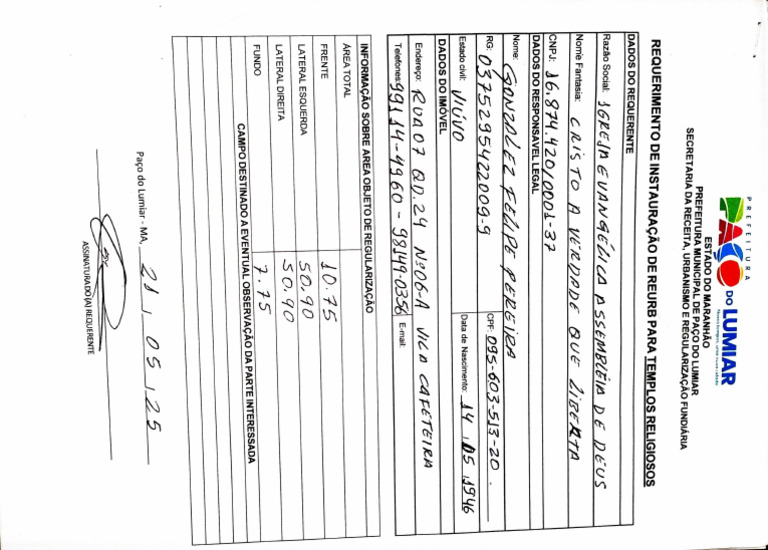 PREFEITURA
PAÇO
DO LUMIAR
ESTADO DO MARANHÃO
PREFEITURA MUNICIPAL DE PAÇO DO LUMIAR
SECRETARIA DA RECEITA, URBANISMO E REGULARIZAÇÃO FUNDIÁRIA
REQUERIMENTO DE INSTAURAÇÃO DE REURB PARA TEMPLOS RELIGIOSOS
DADOS DO REQUERENTE
Razão Social: IGREJA EVANGÉLICA ASSEMBLÉIA DE DEUS
Nome Fantasia: CRISTO A VERDADE QUE LIBERTA
CNPJ: 16.874.420/0001-37
DADOS DO RESPONSAVEL LEGAL
Nome: GONZALEZ FELIPE PEREIRA
RG: 0375295422009-9 CPF: 095-603-513-20.
Estado civil: VIÚVO Data de Nascimento: 14.05.1946
DADOS DO IMÓVEL
Endereço: RUA 07 QD.24 Nº:06-A VILA CAFETEIRA
Telefones: 99114-4960 - 98149-0356 E-mail:
INFORMAÇÃO SOBRE AREA OBJETO DE REGULARIZAÇÃO
ÁREA TOTAL
FRENTE 10.75
LATERAL ESQUERDA 50.90
LATERAL DIREITA 50.90
FUNDO 7.75
CAMPO DESTINADO A EVENTUAL OBSERVAÇÃO DA PARTE INTERESSADA
Paço do Lumiar - MA, 21.05.25
ASSINATURA DO (A) REQUERENTE